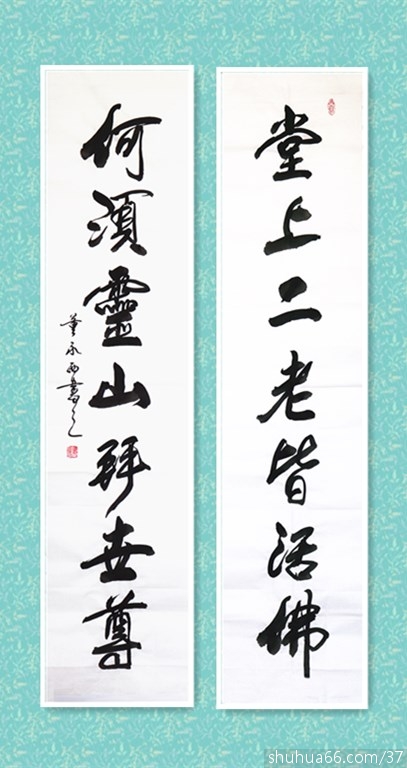 堂上二老皆活佛
何須靈山拜世尊
董永西書之
shuhua66.com/37